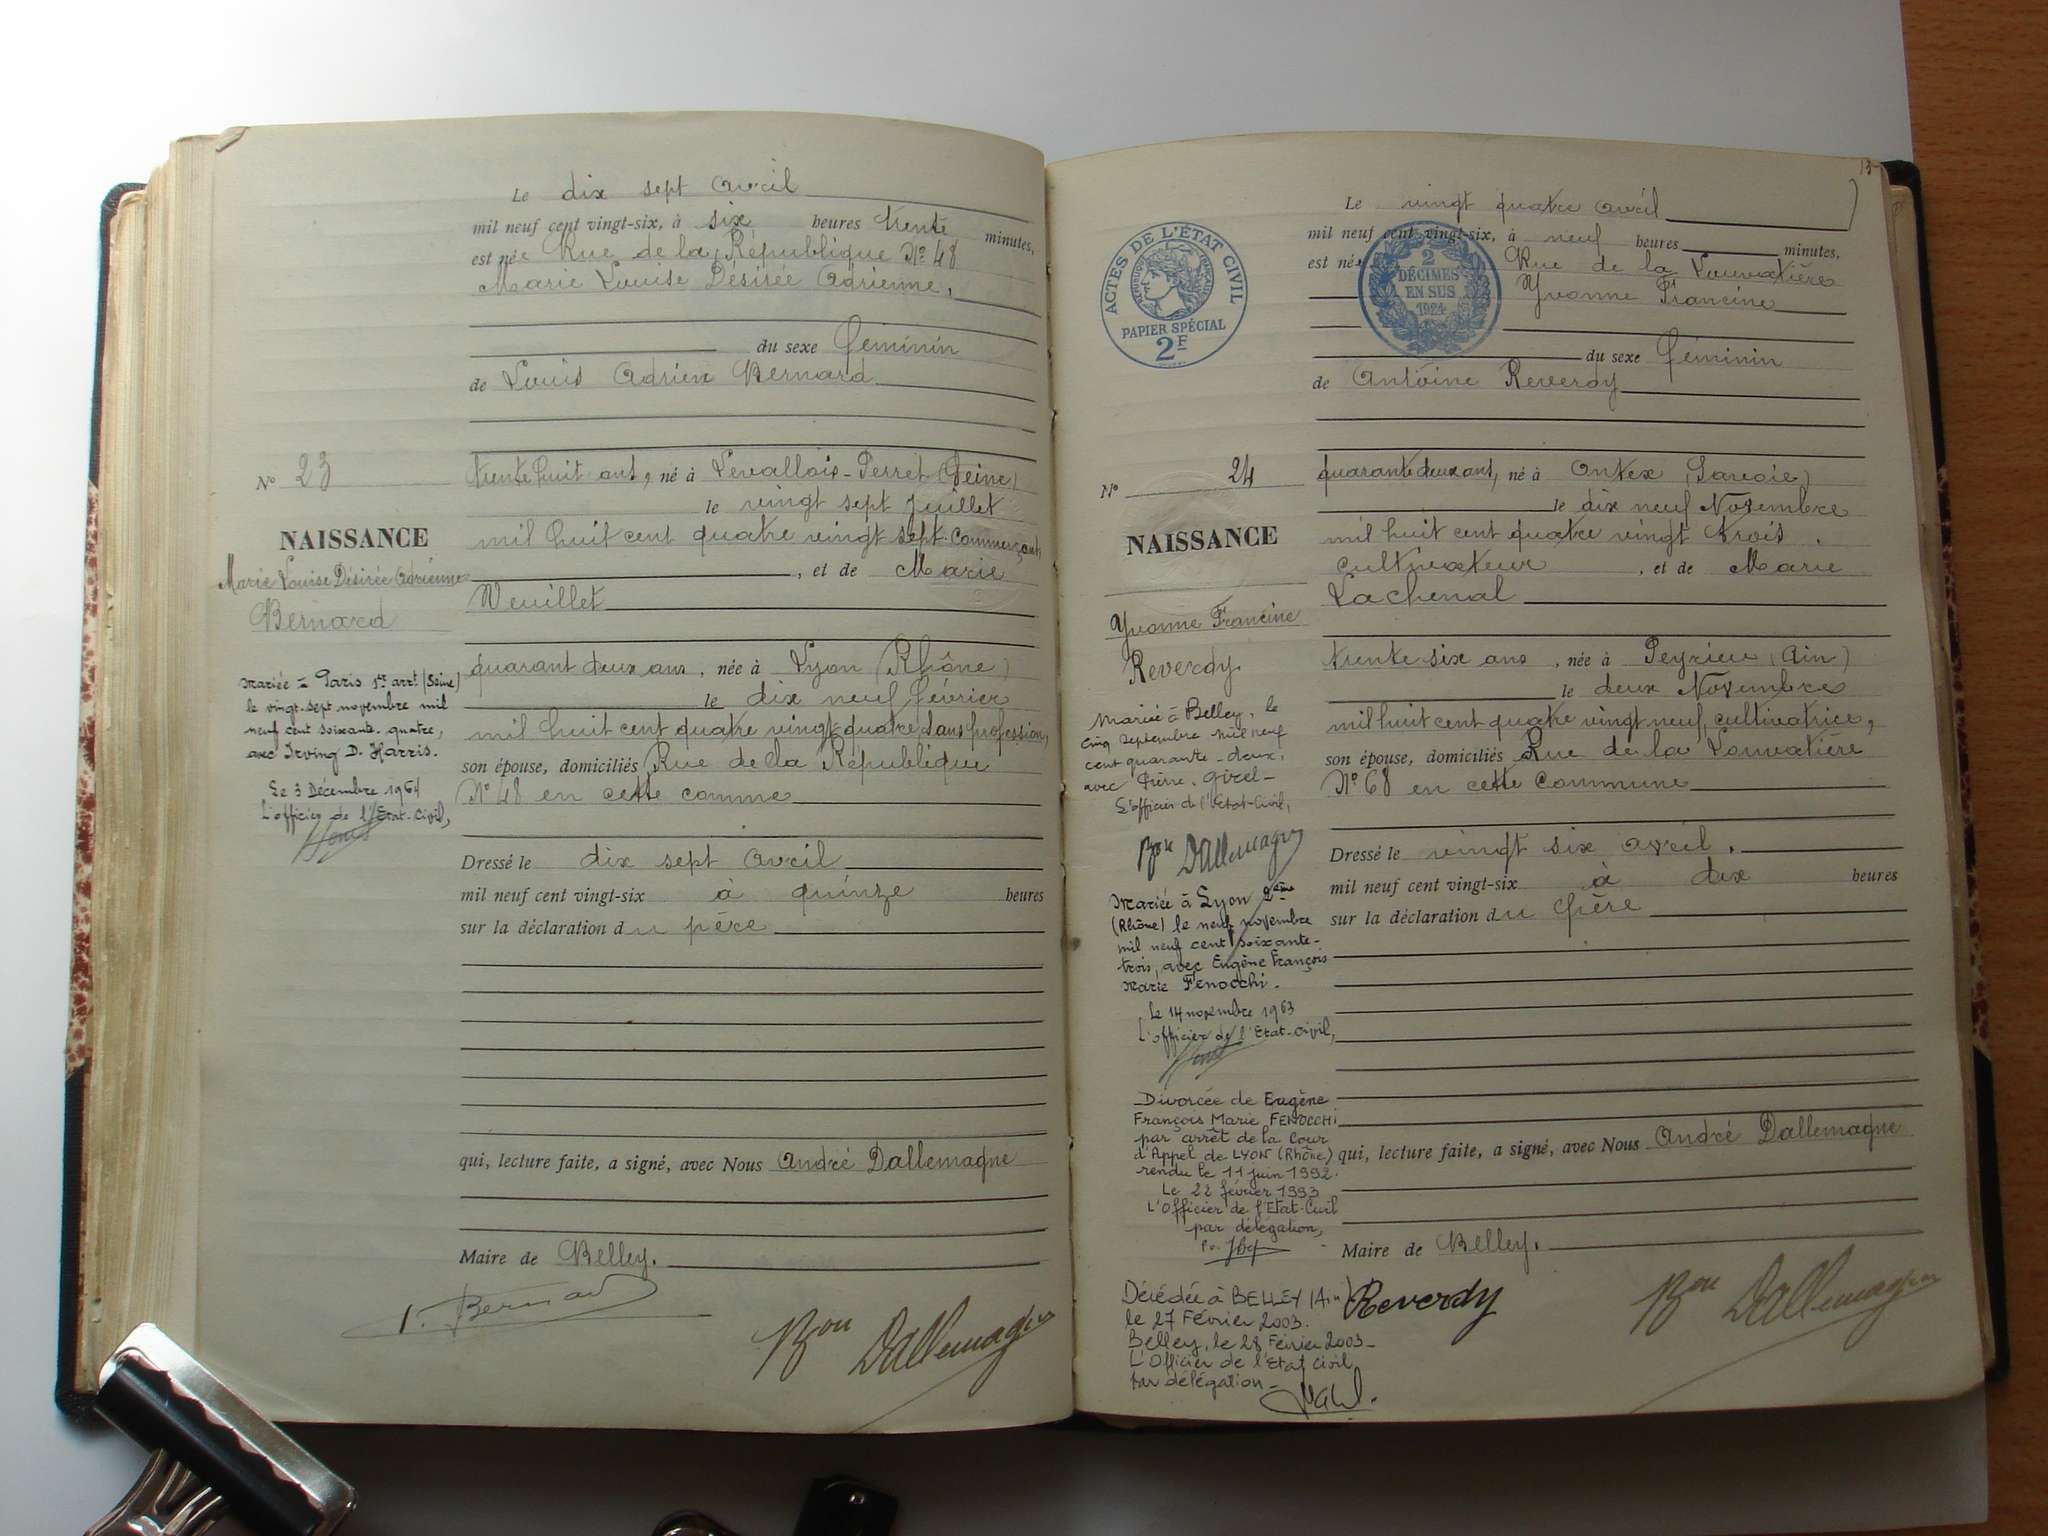 Le dix sept avril
mil neuf cent vingt-six, à six heures trente minutes,
est née Rue de la République N° 48
Marie Louise Désirée Adrienne,
du sexe féminin
de Louis Adrien Bernard
N° 23
trente huit ans, né à Levallois-Perret (Seine)
le vingt sept Juillet
mil huit cent quatre vingt sept. Commerçant
, et de Marie
Weuillet
quarant deux ans, née à Lyon (Rhône)
le dix neuf février
mil huit cent quatre vingt quatre sans profession,
son épouse, domiciliés Rue de la République
N° 48 en cette comme
Dressé le dix sept avril
mil neuf cent vingt-six à quinze heures
sur la déclaration du père
qui, lecture faite, a signé, avec Nous André Dallemagne
Maire de Belley.
Bernard
Bon Dallemagne
NAISSANCE
Marie Louise Désirée Adrienne
Bernard
Mariée à Paris 1er arrt (Seine)
le vingt-sept novembre mil
neuf cent soixante-quatre,
avec Irving D. Harris.
Le 3 Décembre 1964
L'officier de l'Etat-Civil,
13
Le vingt quatre avril
mil neuf cent vingt-six, à neuf heures minutes,
est née Rue de la Louvatière
Yvonne Francine
du sexe féminin
de Antoine Reverdy
ACTES DE L'ÉTAT CIVIL
RÉPUBLIQUE FRANÇAISE
PAPIER SPÉCIAL
2F
2
DÉCIMES
EN SUS
1924
N° 24
quarante deux ans, né à Ontex (Savoie)
le dix neuf Novembre
mil huit cent quatre vingt trois.
cultivateur, et de Marie
Lachenal
trente six ans, née à Peyrieu (Ain)
le deux Novembre
mil huit cent quatre vingt neuf, cultivatrice,
son épouse, domiciliés Rue de la Louvatière
N° 68 en cette commune
Dressé le vingt six avril.
mil neuf cent vingt-six à dix heures
sur la déclaration du père
qui, lecture faite, a signé, avec Nous André Dallemagne
Maire de Belley.
Reverdy
Bon Dallemagne
NAISSANCE
Yvonne Francine
Reverdy
Mariée à Belley, le
cinq septembre mil neuf
cent quarante-deux,
avec Pierre Girel-
L'officier de l'Etat-Civil,
Bon Dallemagne
Mariée à Lyon 2ème
(Rhône) le neuf novembre
mil neuf cent soixante-
trois, avec Eugène François
Marie Fenocchi.
Le 14 novembre 1963
L'officier de l'Etat-Civil,
Divorcée de Eugène
François Marie FENOCCHI
par arrêt de la Cour
d'Appel de LYON (Rhône)
rendu le 11 juin 1992.
Le 22 février 1993
L'Officier de l'Etat-Civil
par délégation,
Décédée à BELLEY (Ain)
le 27 Février 2003.
Belley, le 28 Février 2003-
L'Officier de l'Etat civil
par délégation-